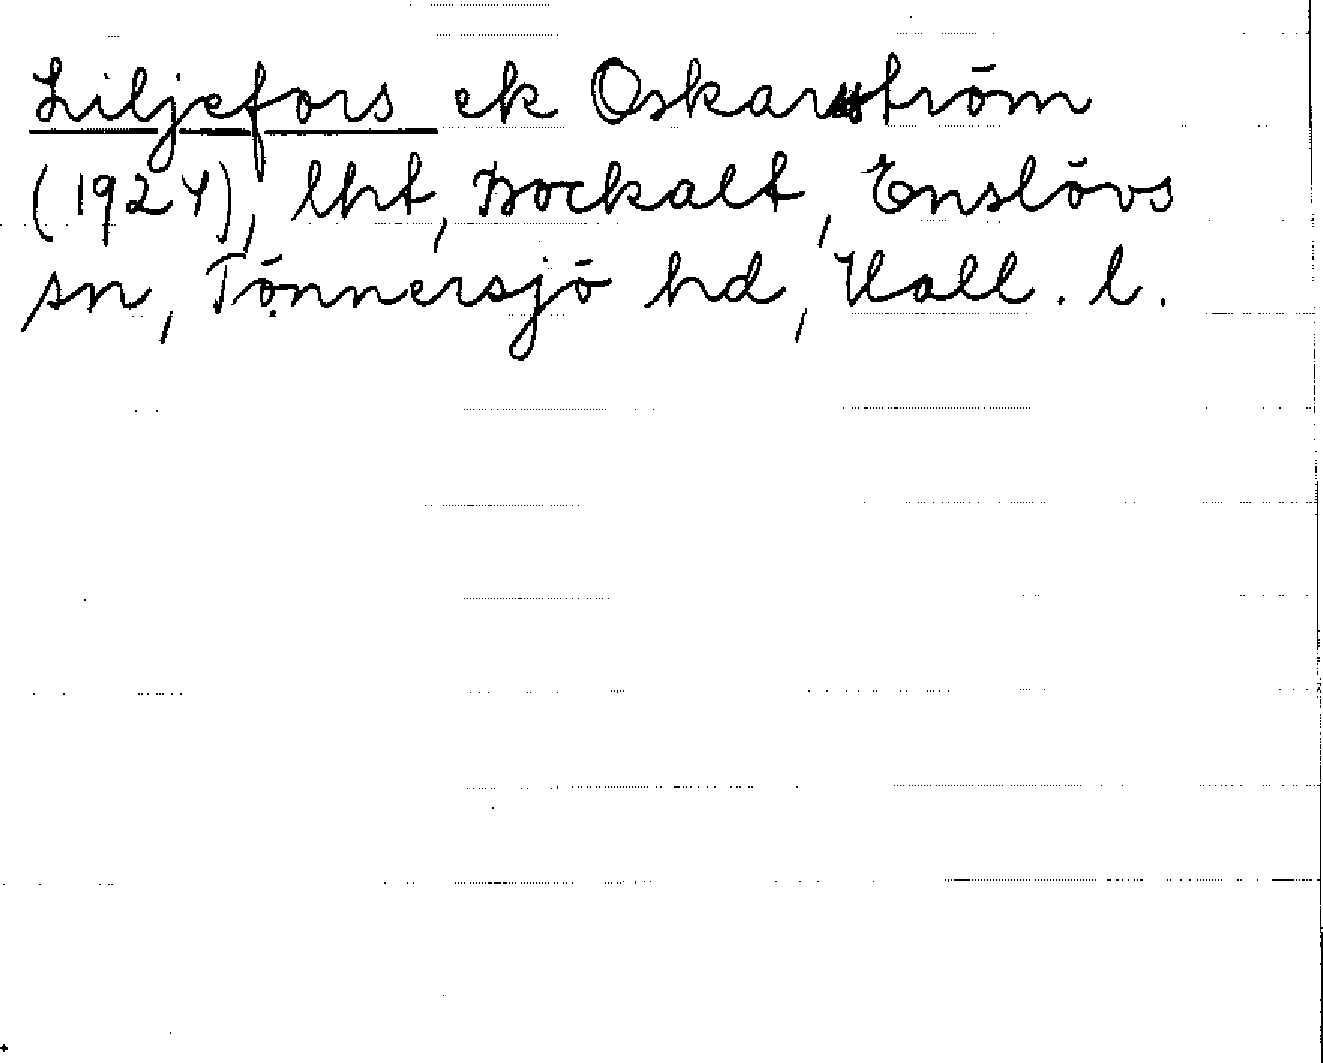 Liljefors ek Oskarström
(1924), lht, Bockalt, Enslövs
sn, Tönnersjö hd, Hall. l.